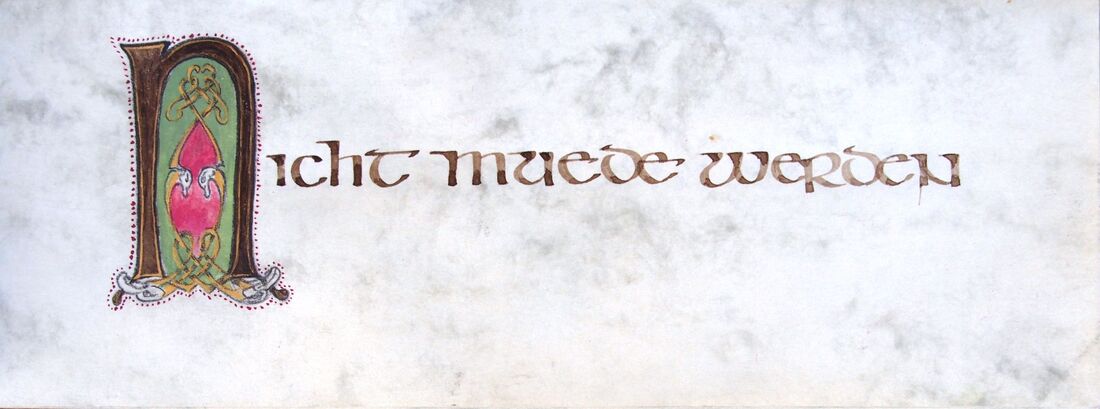 Nicht muede werden